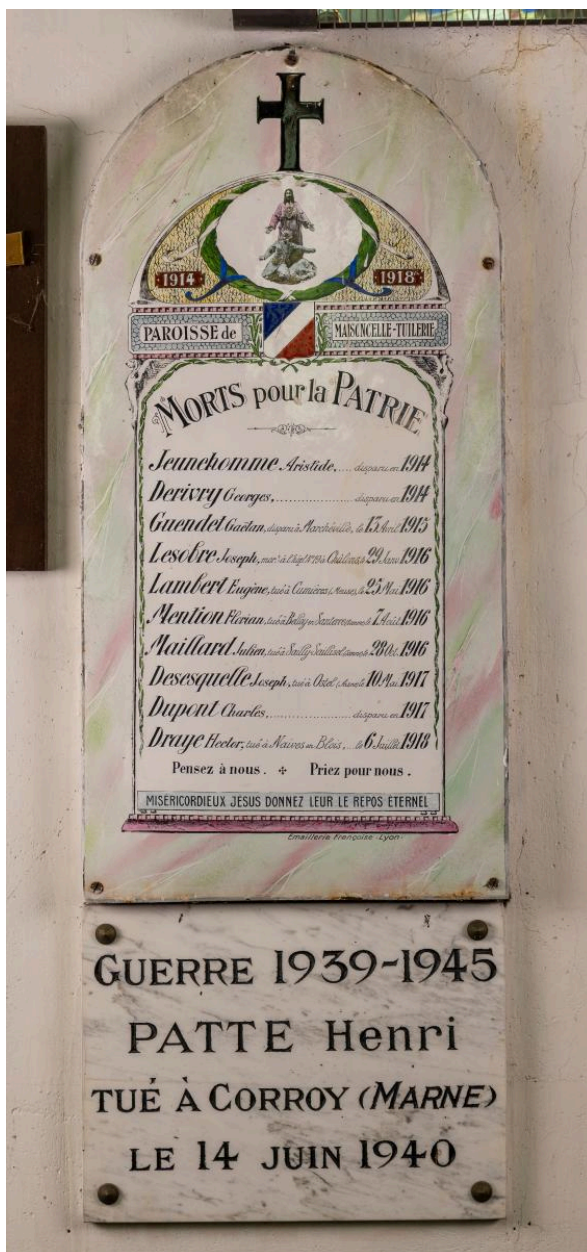 1914 1918
PAROISSE de MAISONCELLE-TUILERIE
MORTS pour la PATRIE
Jeunehomme Aristide,.... disparu en 1914
Derivry Georges,.................. disparu en 1914
Guendet Gaëtan, disparu à Marchéville, le 13 Avril 1915
Lesobre Joseph, à Châlons, le 29 Janv 1916
Lambert Eugène, tué à Cumières (Meuse), le 25 Mai 1916
Mention Florian, tué à Belloy en Santerre le 7 Août 1916
Maillard Julien, tué à Sailly Saillisel le 28 Oct. 1916
Desesquelle Joseph, tué à Ostel (Aisne) le 10 Mai 1917
Dupont Charles,.................. disparu en 1917
Draye Hector, tué à Naives en Blois,... le 6 Juillet 1918
Pensez à nous. ÷ Priez pour nous.
MISERICORDIEUX JESUS DONNEZ LEUR LE REPOS ETERNEL
Emaillerie Française - Lyon -
GUERRE 1939-1945
PATTE Henri
TUÉ À CORROY (MARNE)
LE 14 JUIN 1940